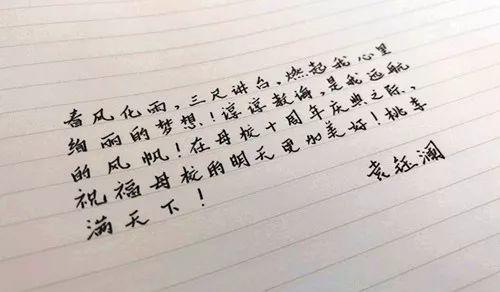 春风化雨，三尺讲台，燃起我心里
绚丽的梦想！谆谆教诲，是我远航
的风帆！在母校十周年庆典之际，
祝福母校的明天更加美好！桃李
满天下！
袁钰澜